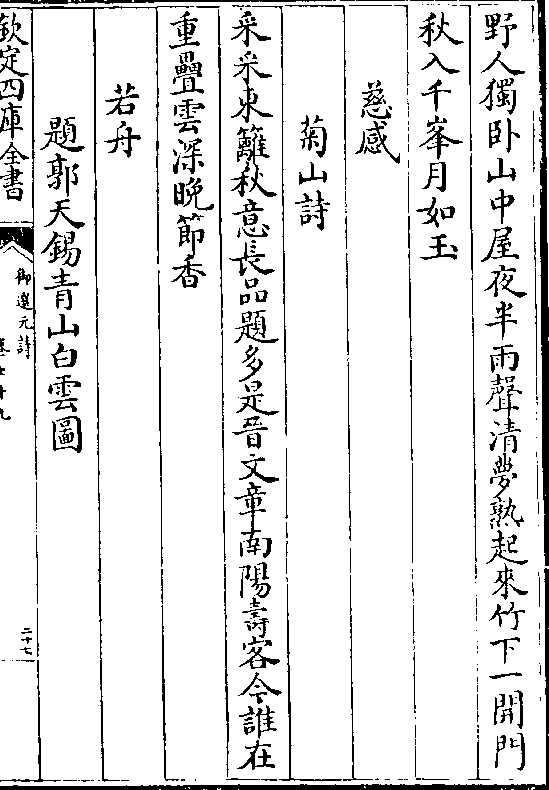 野人獨卧山中屋夜半雨聲清夢熟起來竹下一開門
秋入千峯月如玉
慈感
菊山詩
采采東籬秋意長品題多是晉文章南陽壽客今誰在
重疊雲深晚節香
若舟
題郭天錫青山白雲圖
欽定四庫全書
御選元詩
卷七十九
二十七